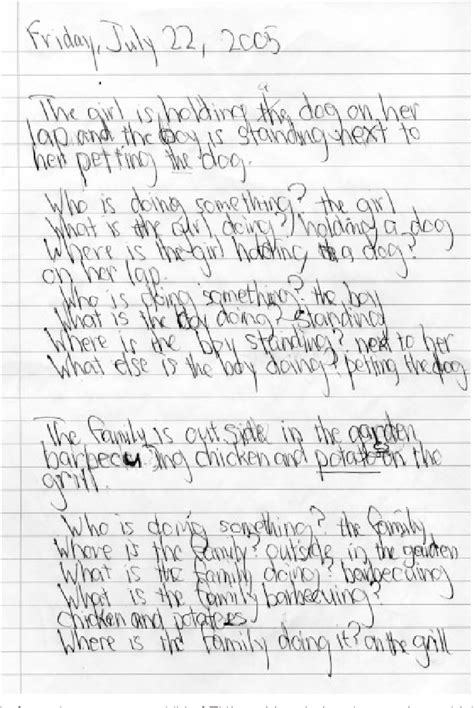 Friday, July 22, 2005
The girl is holding the dog on her
lap and the boy is standing next to
her petting the dog.
Who is doing something? the girl
What is the girl doing? holding a dog
Where is the girl holding a dog?
on her lap.
Who is doing something? the boy
What is the boy doing? standing
Where is the boy standing? next to her
What else is the boy doing? petting the dog
The family is outside in the garden
barbecuing chicken and potato on the
grill.
Who is doing something? the family
Where is the family? outside in the garden
What is the family doing? barbecuing
What is the family barbecuing?
chicken and potatoes
Where is the family doing it? on the grill